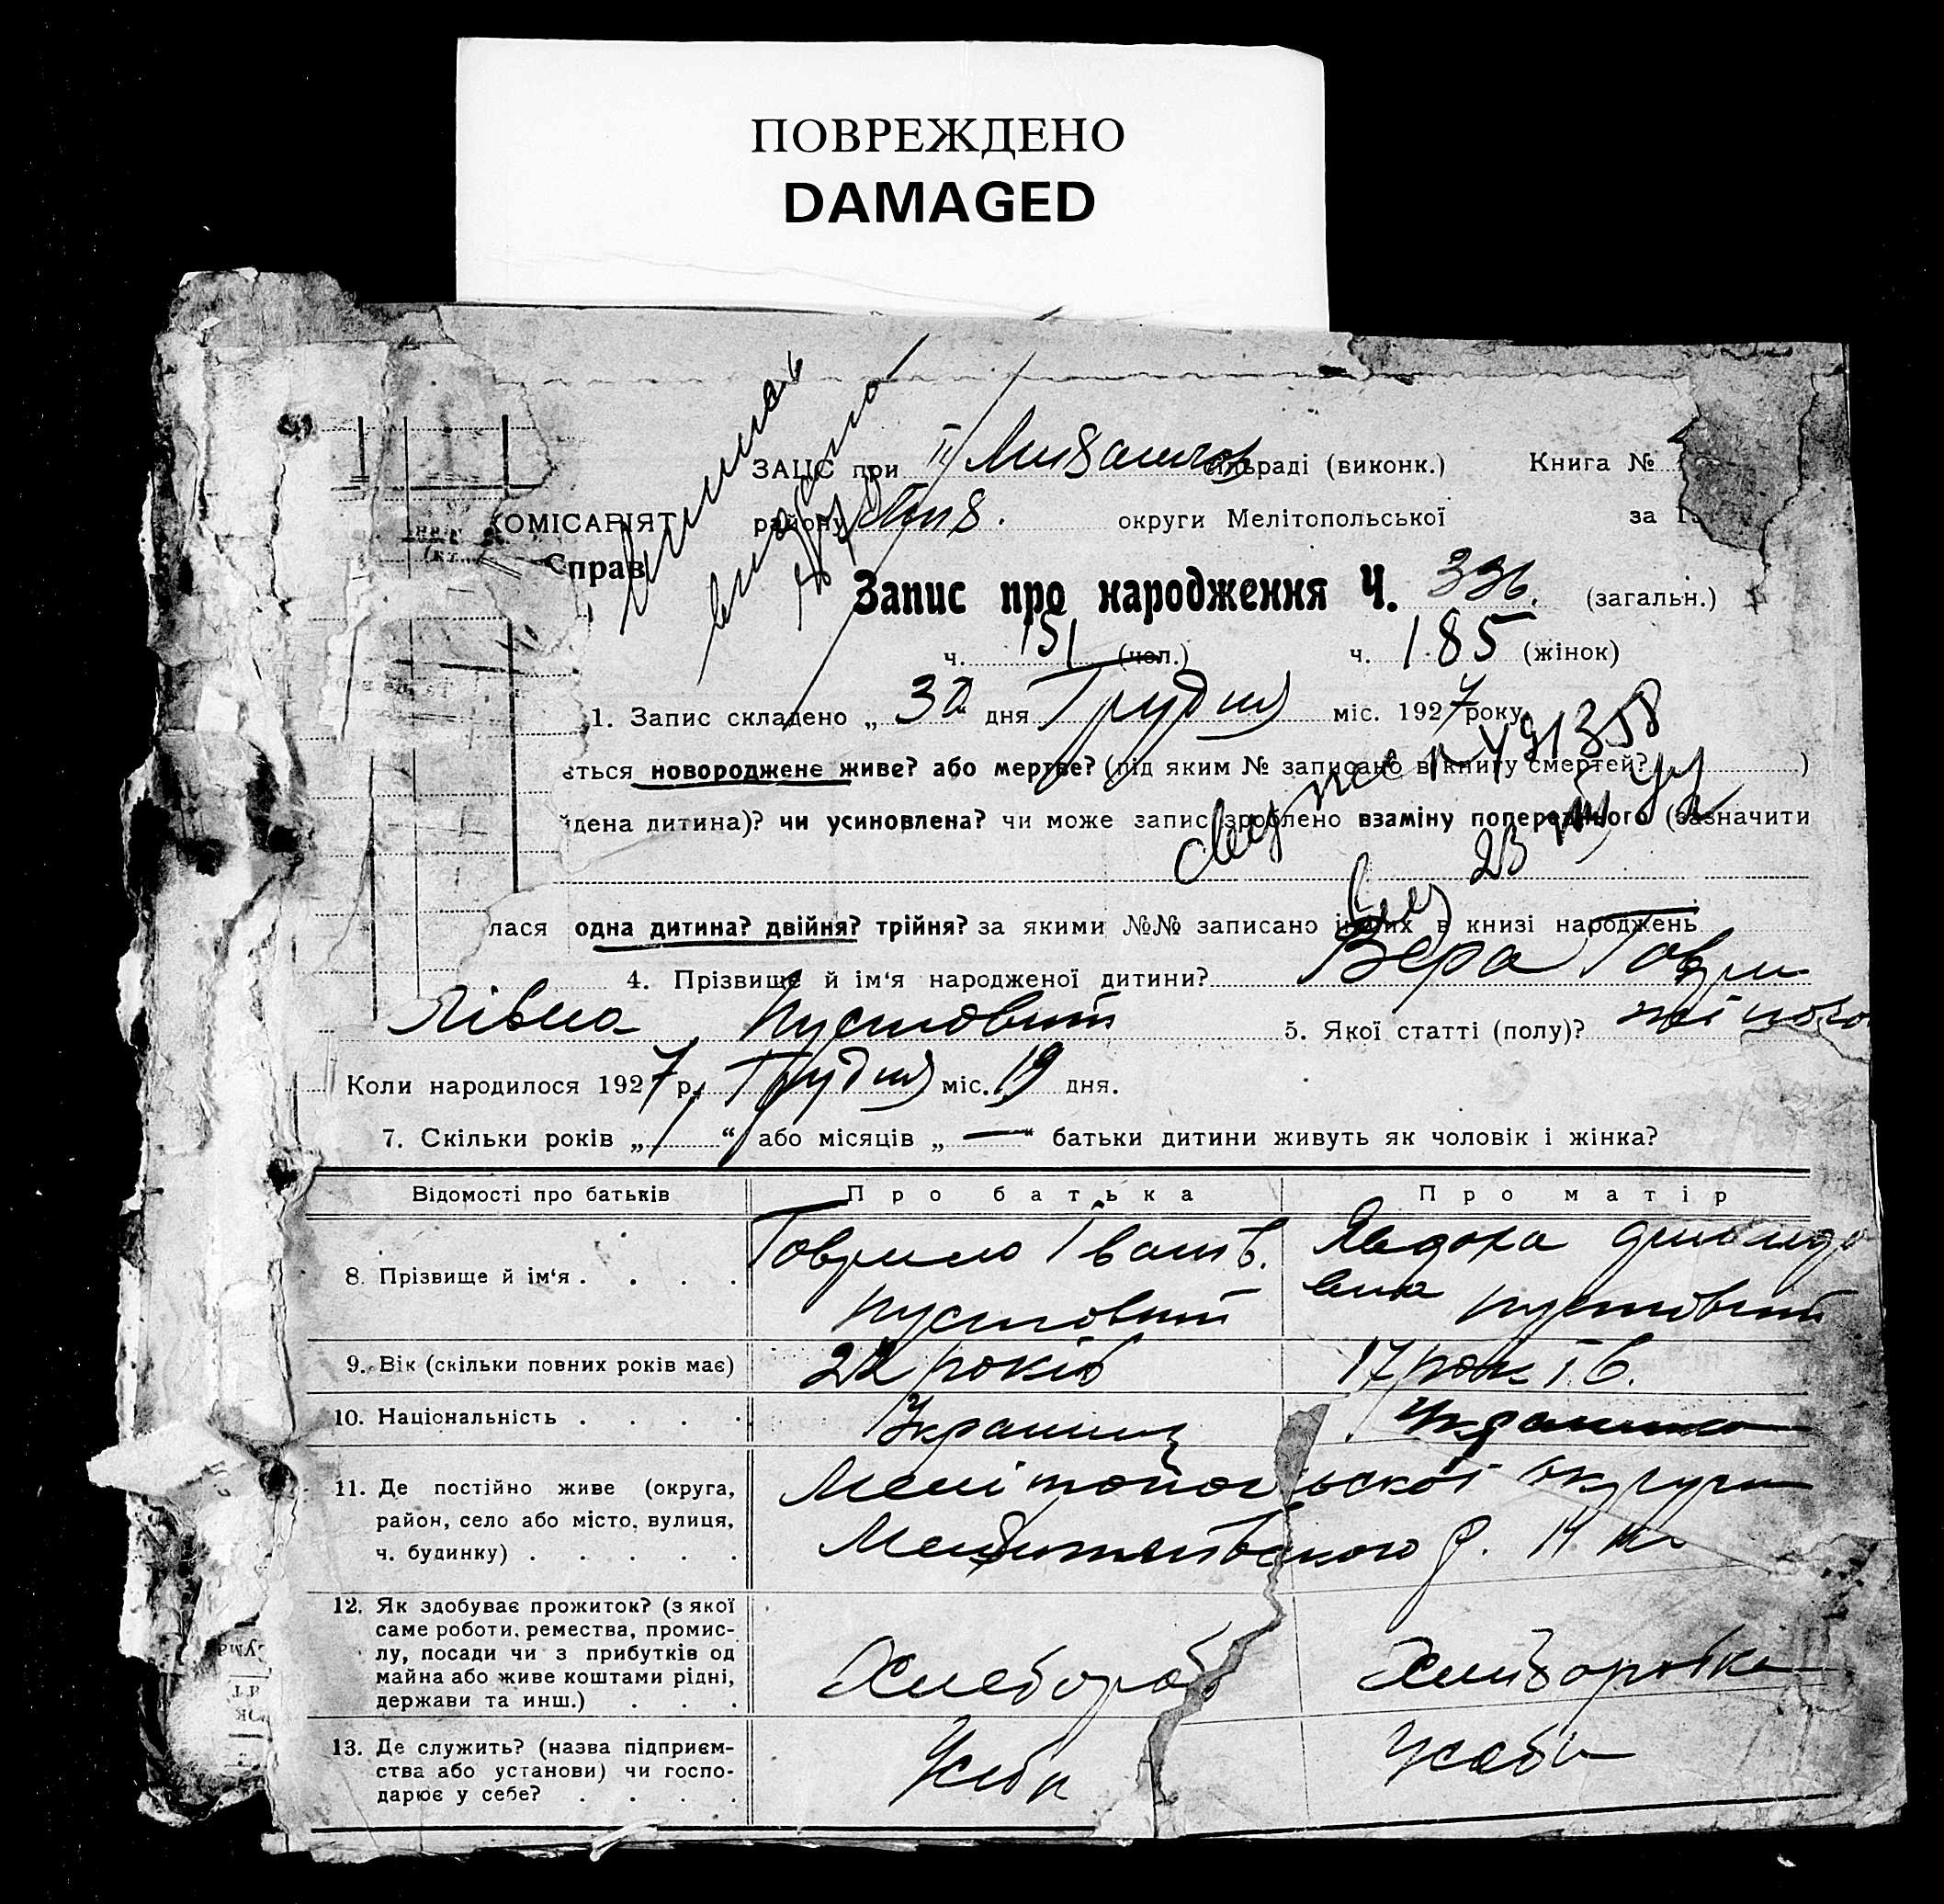 ПОВРЕЖДЕНО
DAMAGED
ЗАЦС при сільраді (виконк.) Книга №
КОМІСАРІЯТ району округи Мелітопольської за 19
Справ
Запис про народження Ч. 336. (загальн.)
ч. 151 (чол.) ч. 185 (жінок)
1. Запис складено „ 30 " дня Грудня міс. 1927 року
ється новороджене живе? або мертве? (під яким № записано в книгу смертей? )
йдена дитина)? чи усиновлена? чи може запис зроблено взаміну попереднього (зазначити
лася одна дитина? двійня? трійня? за якими №№ записано інших в книзі народжень
4. Прізвище й ім'я народженої дитини? Вера Гаври
лівна Пустовит 5. Якої статті (полу)? жіночо
Коли народилося 1927 р. Грудня міс. 19 дня.
7. Скільки років „ 1 “ або місяців „ — “ батьки дитини живуть як чоловік і жінка?
Відомості про батьків Про батька Про матір
8. Прізвище й ім'я . . . . Гаврило Іванів. Явдоха
вна
Пустовит Пустовит
9. Вік (скільки повних років має) 22 років 17 років.
10. Національність . . . . Украинец Украинка
11. Де постійно живе (округа, Мелітопольскоі округи
район, село або місто, вулиця,
ч. будинку) . . . . . р.
12. Як здобуває прожиток? (з якої
саме роботи, ремества, промис-
лу, посади чи з прибутків од
майна або живе коштами рідні, Хлебороб Хлиборобка
держави та инш.) . . .
13. Де служить? (назва підприєм- Усебя Усебя
ства або установи) чи госпо-
дарює у себе? . . . .